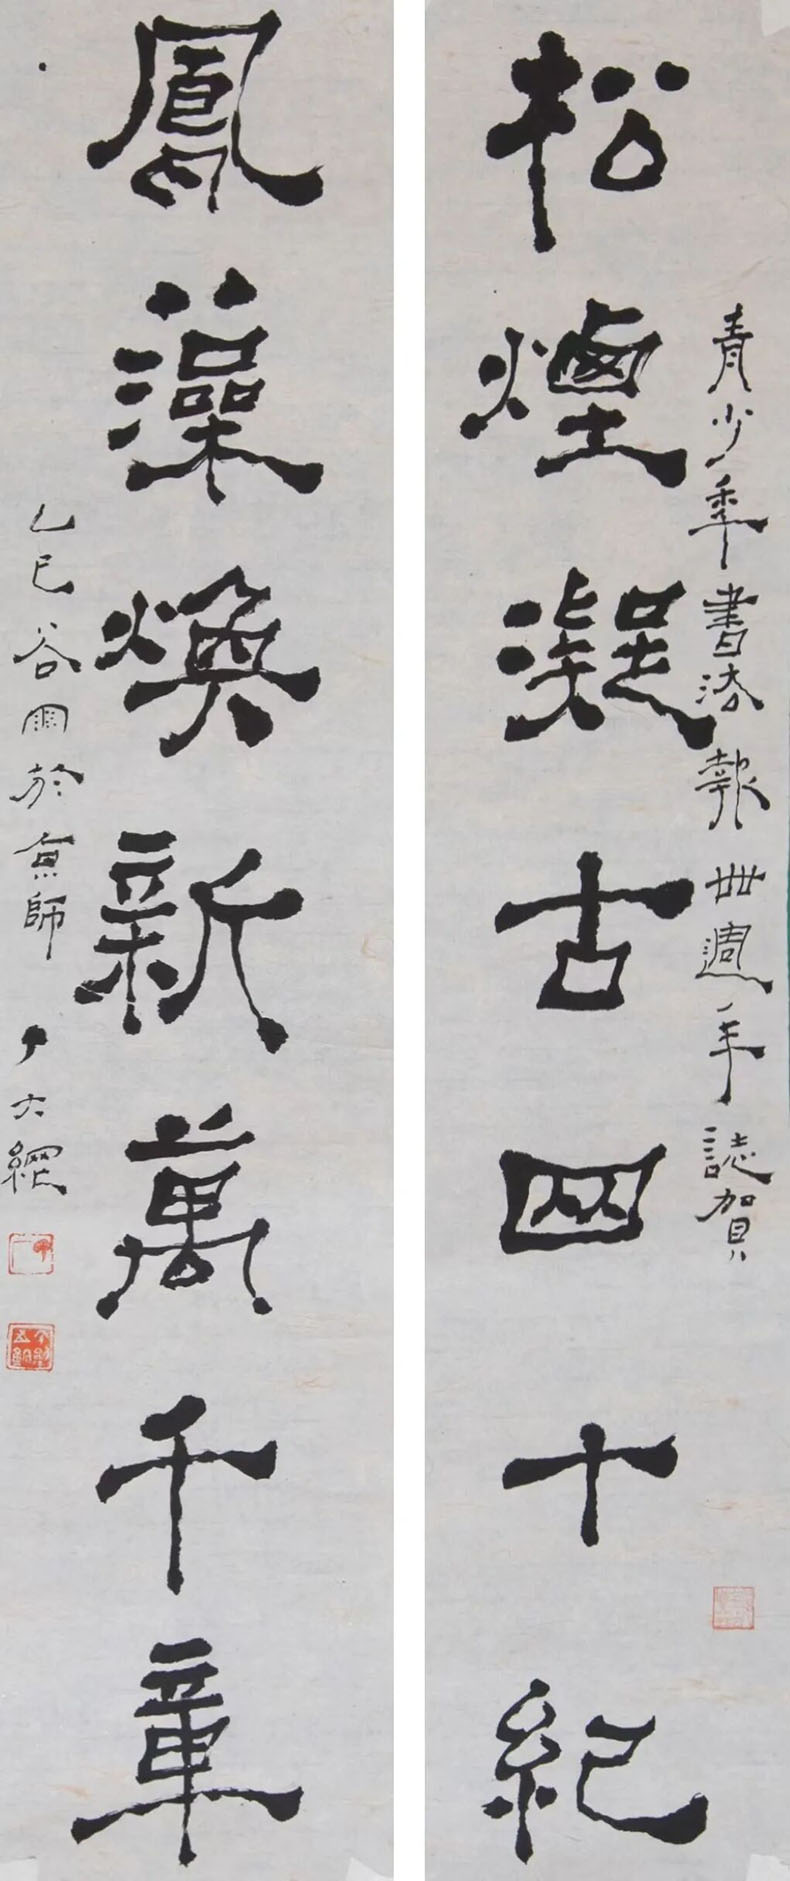 松煙凝古四十紀
青少年書法報卌週年誌賀
鳳藻煥新萬千章
乙巳谷雨於京師 尹大網